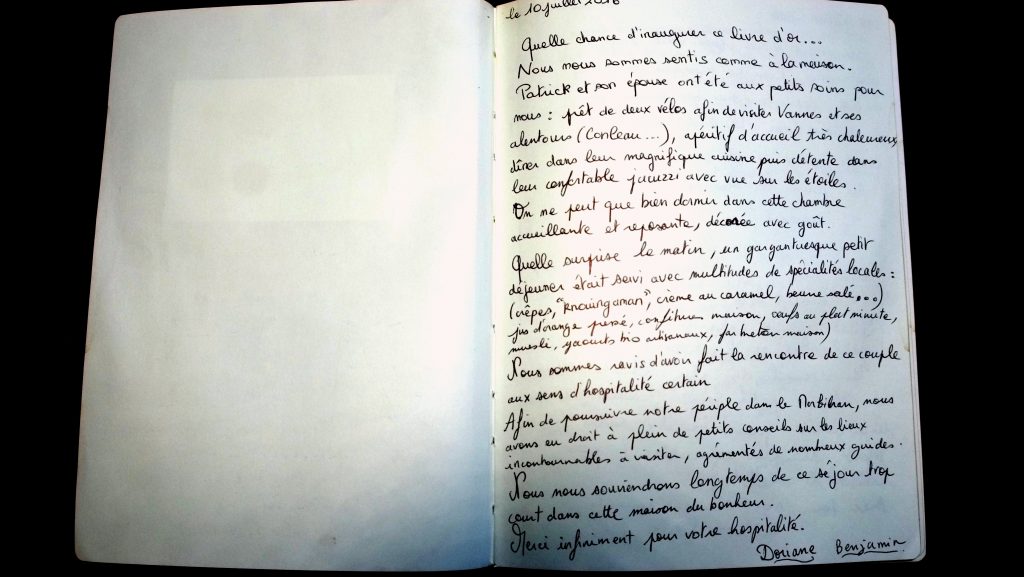 le 10 juillet 2016
Quelle chance d'inaugurer ce livre d'or...
Nous nous sommes sentis comme à la maison.
Patrick et son épouse ont été aux petits soins pour
nous : prêt de deux vélos afin de visiter Vannes et ses
alentours (Conleau...), apéritif d'accueil très chaleureux,
dîner dans leur magnifique cuisine puis détente dans
leur confortable jacuzzi avec vue sur les étoiles.
On ne peut que bien dormir dans cette chambre
accueillante et reposante, décorée avec goût.
Quelle surprise le matin, un gargantuesque petit
déjeuner était servi avec multitudes de spécialités locales :
(crêpes, "knouingaman", crème au caramel, beurre salé...)
jus d'orange pressé, confitures maison, oeufs au plat minute,
muesli, yaourts bio artisanaux, far breton maison)
Nous sommes ravis d'avoir fait la rencontre de ce couple
aux sens d'hospitalité certain
Afin de poursuivre notre périple dans le Morbihan, nous
avons eu droit à plein de petits conseils sur les lieux
incontournables à visiter, agrémentés de nombreux guides.
Nous nous souviendrons longtemps de ce séjour trop
court dans cette maison du bonheur.
Merci infiniment pour votre hospitalité.
Doriane Benjamin